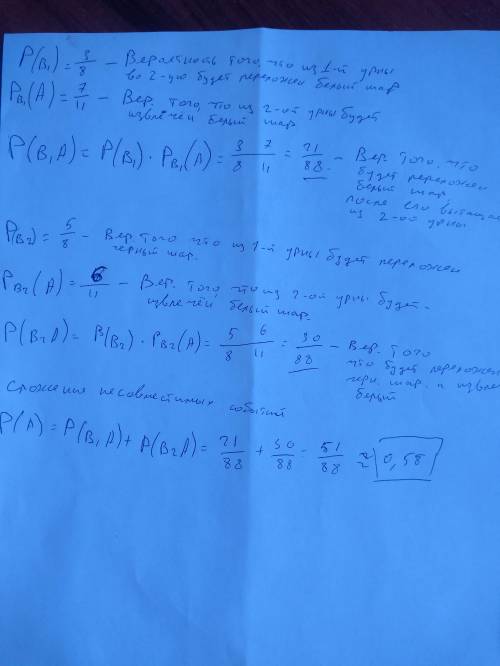 P(B₁) = 3/8 – Вероятность того, что из 1-й урны
во 2-ую будет переложен белый шар
P_B₁(A) = 7/11 – Вер. того, что из 2-ой урны будет
извлечён белый шар.
P(B₁A) = P(B₁) · P_B₁(A) = 3/8 7/11 = 21/88 – Вер. того, что
будет переложен
белый шар
после его вытащ
из 2-ой урны
P(B₂) = 5/8 – Вер. того что из 1-й урны будет переложен
черный шар.
P_B₂(A) = 6/11 – Вер. того, что из 2-ой урны будет
извлечён белый шар.
P(B₂A) = P(B₂) · P_B₂(A) = 5/8 6/11 = 30/88 – Вер. того
что будет переложен
черн. шар. и извле
белый
Сложения несовместимых событий
P(A) = P(B₁A) + P(B₂A) = 21/88 + 30/88 = 51/88 ≈ 0,58